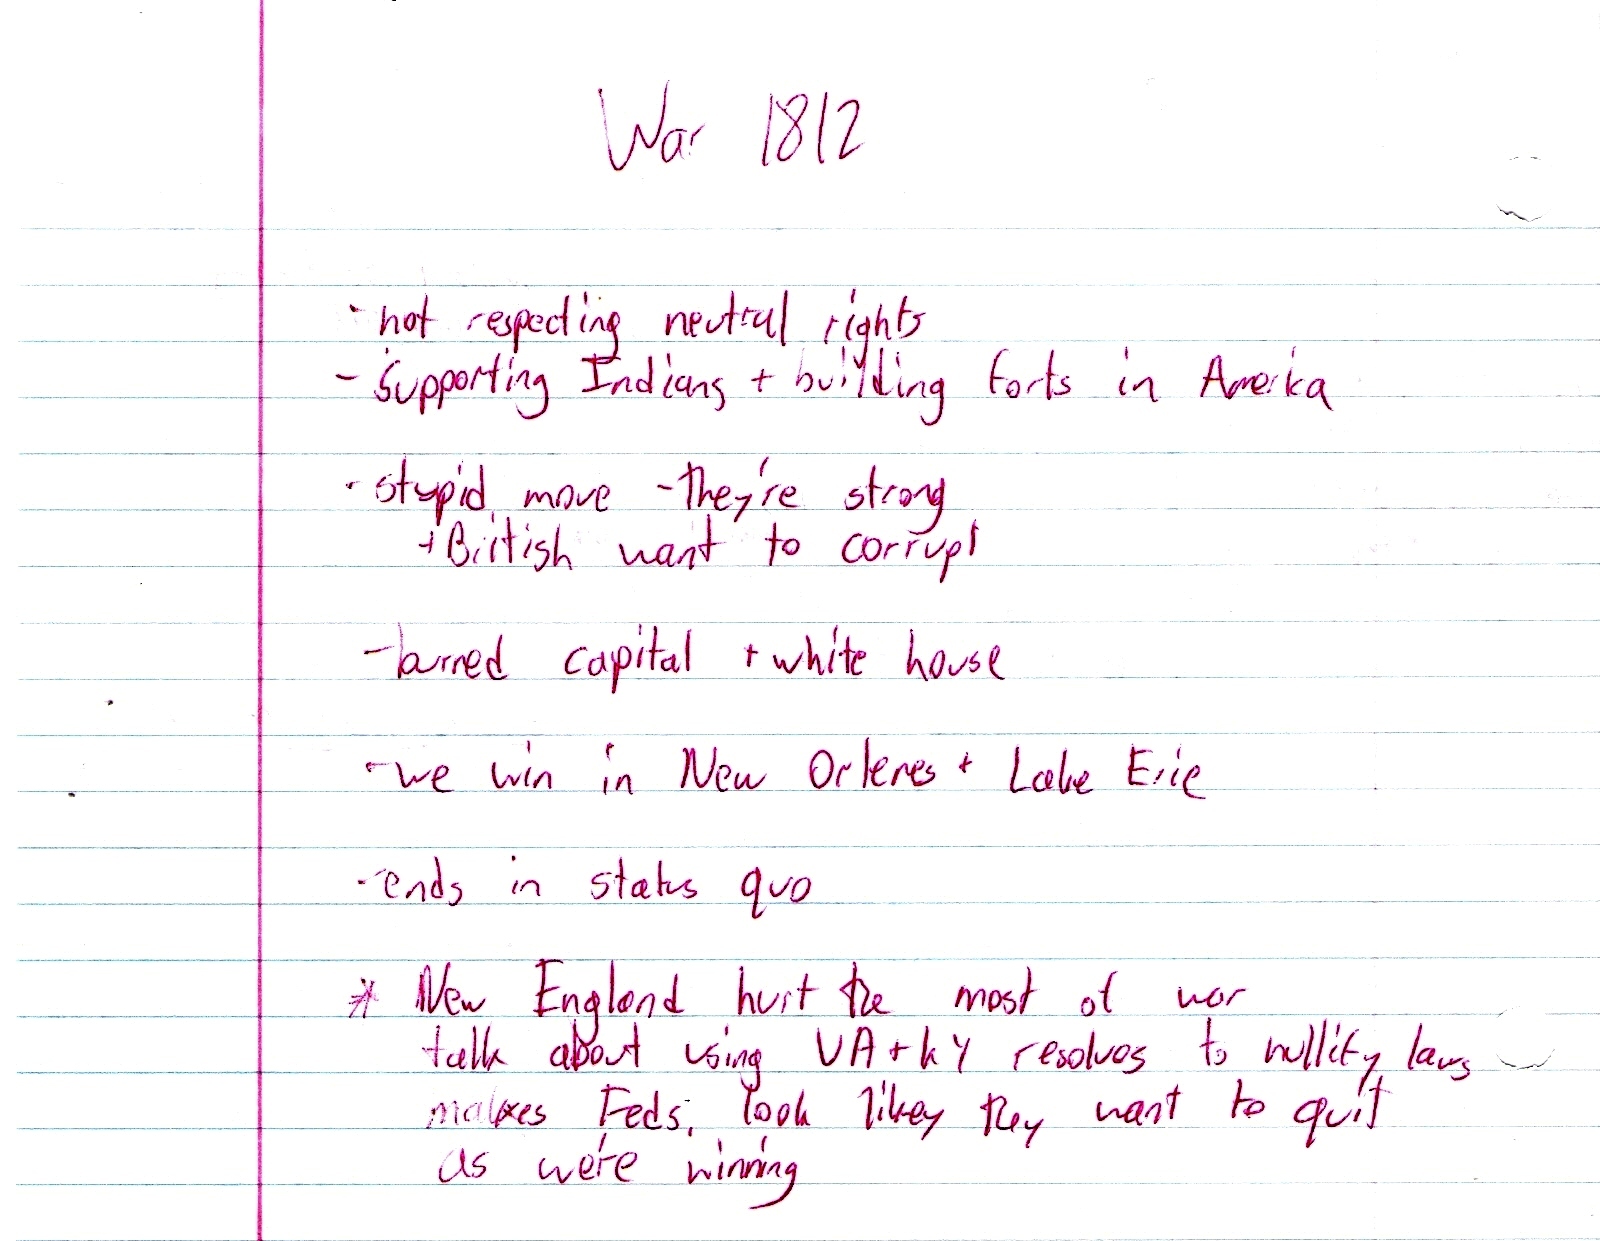 War 1812
- not respecting neutral rights
- Supporting Indians + building forts in America
- stupid move - they're strong
+ British want to corrupt
- burned capital + white house
- we win in New Orlenes + Lake Erie
- ends in status quo
* New England hurt the most of war
talk about using VA + KY resolves to nullify laws
makes Feds. look likey they want to quit
as we're winning